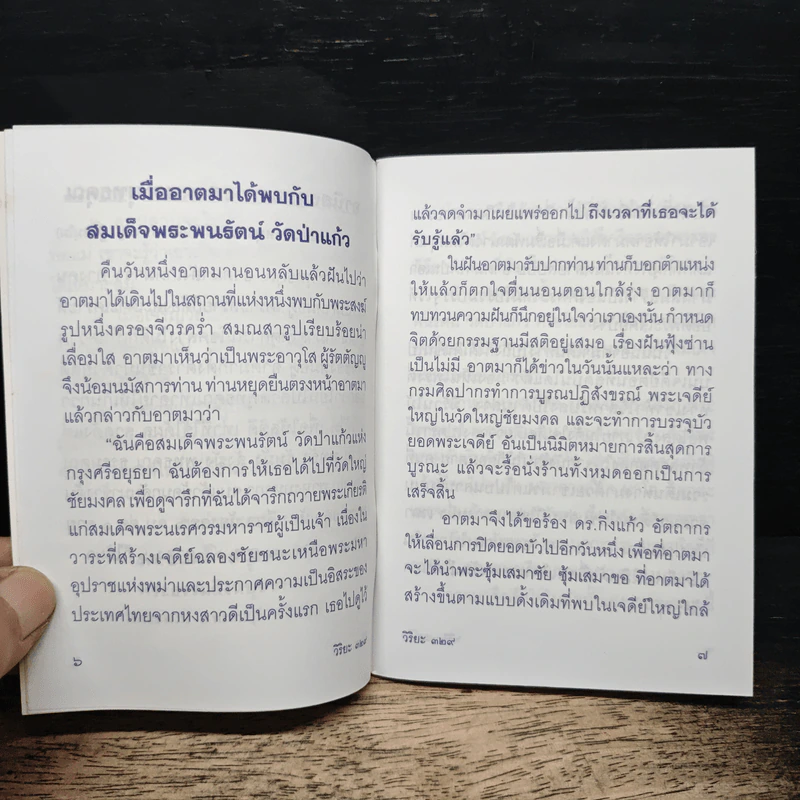 เมื่ออาตมาได้พบกับ
สมเด็จพระพนรัตน์ วัดป่าแก้ว
คืนวันหนึ่งอาตมานอนหลับแล้วฝันไปว่า
อาตมาได้เดินไปในสถานที่แห่งหนึ่งพบกับพระสงฆ์
รูปหนึ่งครองจีวรคร่ำ สมณสารูปเรียบร้อยน่า
เลื่อมใส อาตมาเห็นว่าเป็นพระอาวุโส ผู้รัตตัญญู
จึงน้อมนมัสการท่าน ท่านหยุดยืนตรงหน้าอาตมา
แล้วกล่าวกับอาตมาว่า
“ฉันคือสมเด็จพระพนรัตน์ วัดป่าแก้วแห่ง
กรุงศรีอยุธยา ฉันต้องการให้เธอได้ไปที่วัดใหญ่
ชัยมงคล เพื่อดูจารึกที่ฉันได้จารึกถวายพระเกียรติ
แก่สมเด็จพระนเรศวรมหาราชผู้เป็นเจ้า เนื่องใน
วาระที่สร้างเจดีย์ฉลองชัยชนะเหนือพระมหา
อุปราชแห่งพม่าและประกาศความเป็นอิสระของ
ประเทศไทยจากหงสาวดีเป็นครั้งแรก เธอไปดูไว้
๖
วิริยะ ๓๒๙
แล้วจดจำมาเผยแพร่ออกไป ถึงเวลาที่เธอจะได้
รับรู้แล้ว”
ในฝันอาตมารับปากท่าน ท่านก็บอกตำแหน่ง
ให้แล้วก็ตกใจตื่นนอนตอนใกล้รุ่ง อาตมาก็
ทบทวนความฝันก็นึกอยู่ในใจว่าเราเองนั้น กำหนด
จิตด้วยกรรมฐานมีสติอยู่เสมอ เรื่องฝันฟุ้งซ่าน
เป็นไม่มี อาตมาก็ได้ข่าวในวันนั้นแหละว่า ทาง
กรมศิลปากรทำการบูรณปฏิสังขรณ์ พระเจดีย์
ใหญ่ในวัดใหญ่ชัยมงคล และจะทำการบรรจุบัว
ยอดพระเจดีย์ อันเป็นนิมิตหมายการสิ้นสุดการ
บูรณะ แล้วจะรื้อนั่งร้านทั้งหมดออกเป็นการ
เสร็จสิ้น
อาตมาจึงได้ขอร้อง ดร.กิ่งแก้ว อัตถากร
ให้เลื่อนการปิดยอดบัวไปอีกวันหนึ่ง เพื่อที่อาตมา
จะ ได้นำพระซุ้มเสมาชัย ซุ้มเสมาขอ ที่อาตมาได้
สร้างขึ้นตามแบบดั้งเดิมที่พบในเจดีย์ใหญ่ใกล้
วิริยะ ๓๒๙
๗